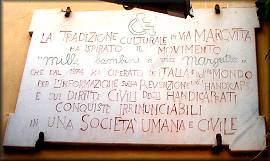 LA TRADIZIONE CULTURALE DI VIA MARGUTTA
HA ISPIRATO IL MOVIMENTO
"mille bambini a via margutta"
CHE DAL 1974 HA OPERATO IN ITALIA E NEL MONDO
PER L'INFORMAZIONE SULLA PREVENZIONE DELL'HANDICAP
E SUI DIRITTI CIVILI DEGLI HANDICAPPATI
CONQUISTE IRRINUNCIABILI
IN UNA SOCIETÀ UMANA E CIVILE